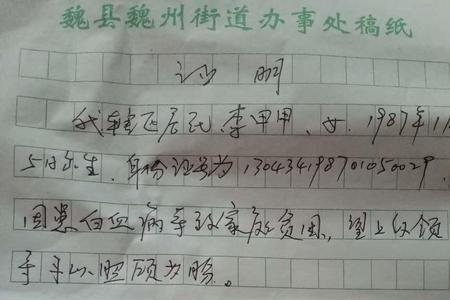 魏县魏州街道办事处稿纸
证明
我辖区居民李甲甲,女,1987年1月
5日出生,身份证号为130434198701050029,
因患白血病导致家庭贫困,望上级领
予以照顾为盼。